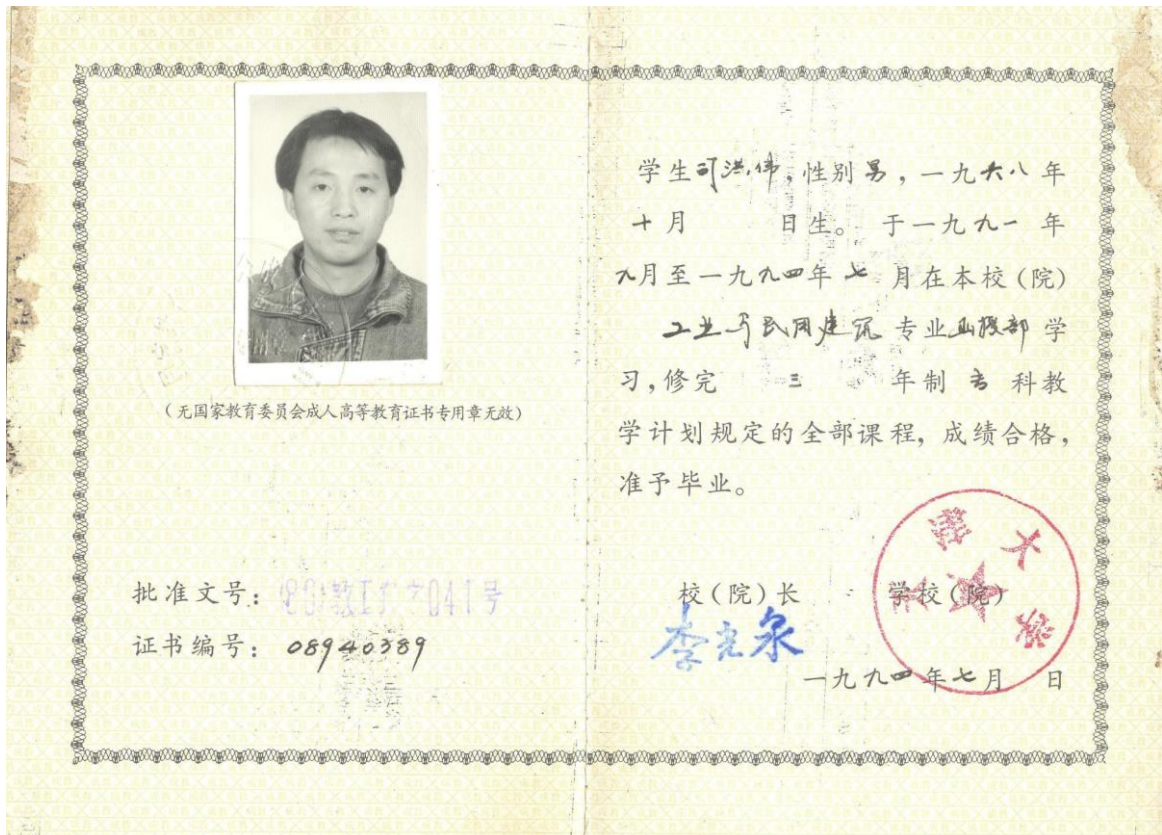 (无国家教育委员会成人高等教育证书专用章无效)
批准文号:
证书编号: 08940389
学生司洪伟,性别男,一九六八年
十月 日生。 于一九九一 年
九月至一九九四年七 月在本校(院)
工业与民用建筑 专业函授部 学
习,修完 三 年制 专 科教
学计划规定的全部课程,成绩合格,
准予毕业。
校(院)长 学校(院)
一九九四年七月 日